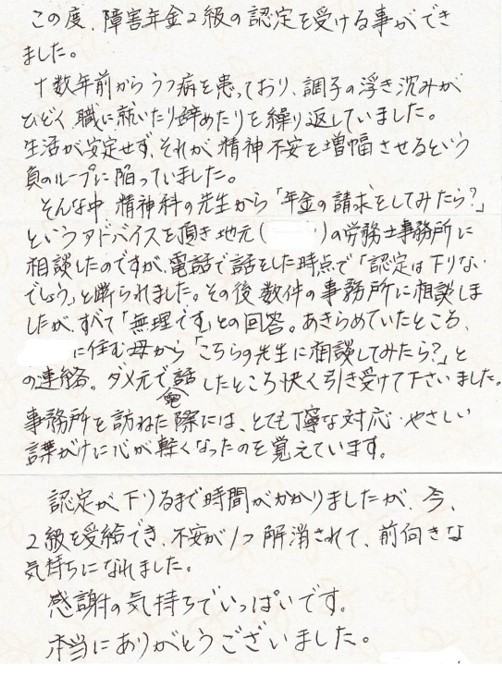 この度、障害年金2級の認定を受ける事ができ
ました。
十数年前からうつ病を患っており、調子の浮き沈みが
ひどく、職に就いたり辞めたりを繰り返していました。
生活が安定せず、それが精神不安を増幅させるという
負のループに陥っていました。
そんな中 精神科の先生から「年金の請求をしてみたら?」
というアドバイスを頂き地元( )の労務士事務所に
相談したのですが、電話で話をした時点で「認定は下りない
でしょう」と断られました。その後 数件の事務所に相談しま
したが、すべて「無理です」との回答。あきらめていたところ、
に住む母から「こちらの先生に相談してみたら?」と
の連絡。ダメ元で電話したところ快く引き受けて下さいました。
事務所を訪ねた際には、とても丁寧な対応・やさしい
言葉がけに心が軽くなったのを覚えています。
認定が下りるまで時間がかかりましたが、今、
2級を受給でき、不安が1つ解消されて、前向きな
気持ちになれました。
感謝の気持ちでいっぱいです。
本当にありがとうございました。